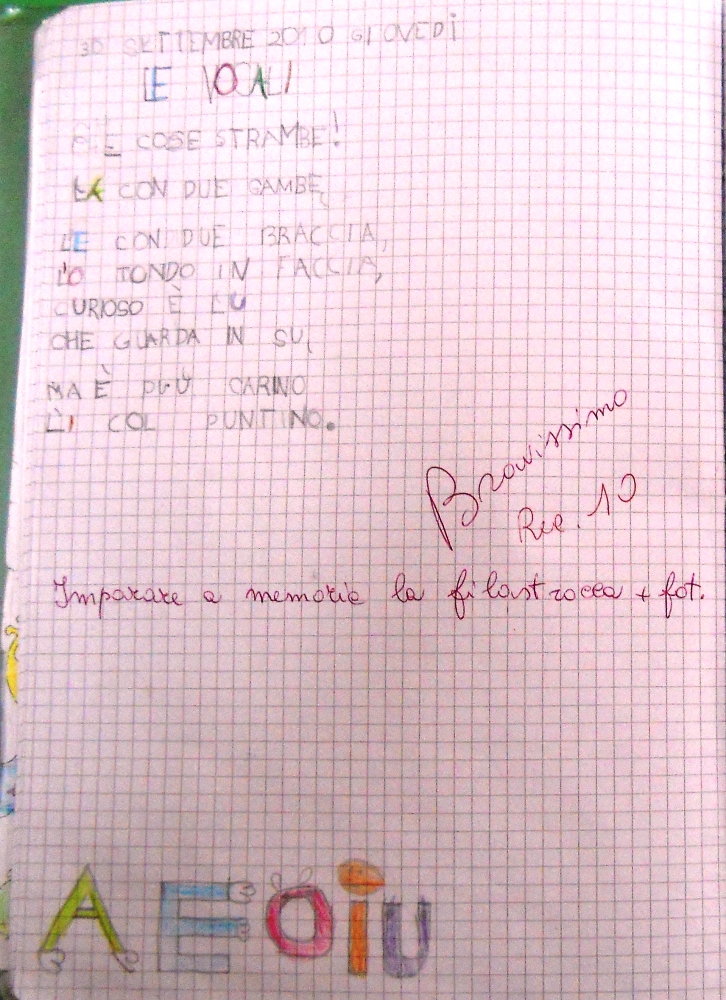 30 SETTEMBRE 2010 GIOVEDÌ
LE VOCALI
CHE COSE STRAMBE!
LA CON DUE GAMBE,
LE CON DUE BRACCIA,
L'O TONDO IN FACCIA,
CURIOSO È LU
CHE GUARDA IN SU,
MA È PIÙ CARINO
LI COL PUNTINO.
Bravissimo
Rec. 10
Imparare a memoria la filastrocca + fot.
A E O i U